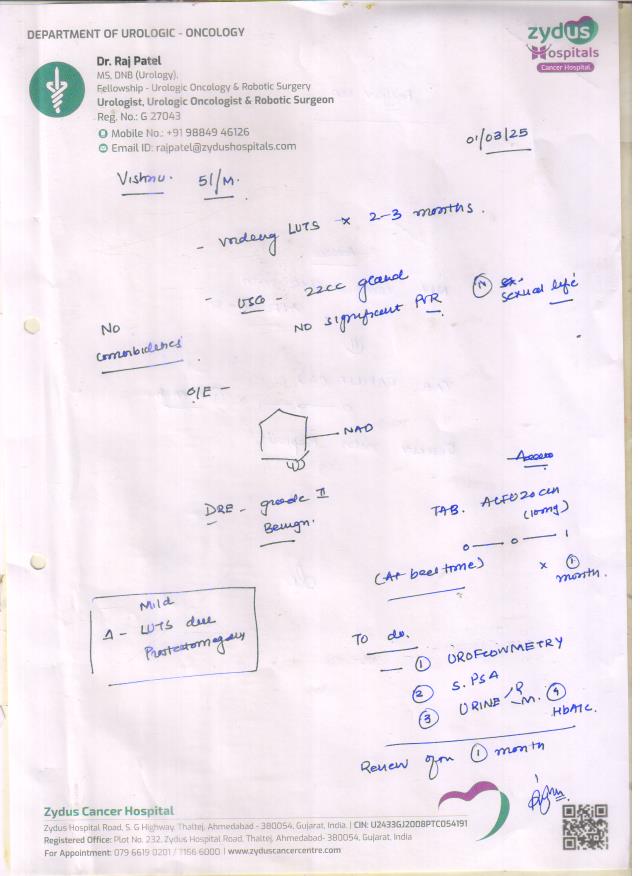 DEPARTMENT OF UROLOGIC - ONCOLOGY
zydus
Hospitals
Cancer Hospital
Dr. Raj Patel
MS, DNB (Urology).
Fellowship - Urologic Oncology & Robotic Surgery
Urologist, Urologic Oncologist & Robotic Surgeon
Reg. No.: G 27043
Mobile No.: +91 98849 46126
Email ID: rajpatel@zydushospitals.com
01/03/25
Vishnu. 51/M.
- Voiding LUTS x 2-3 months.
- USG - 22cc gland
NO significant PVR
(N) sexual life
No
comorbidities.
O/E -
NAD
DRE - grade II
Benign.
TAB. ALFUZOCEN
(10mg)
0 — 0 — 1
(At bed time) x (1)
month.
Mild
Δ - LUTS due
Prostatomegaly
To do.
(1) UROFLOWMETRY
(2) S. PSA
(3) URINE R/M. (4)
HbA1C.
Review after (1) month
Zydus Cancer Hospital
Zydus Hospital Road, S. G Highway, Thaltej, Ahmedabad - 380054, Gujarat, India. | CIN: U2433GJ2008PTC054191
Registered Office: Plot No. 232, Zydus Hospital Road, Thaltej, Ahmedabad- 380054, Gujarat, India
For Appointment: 079 6619 0201 / 1156 6000 | www.zyduscancercentre.com